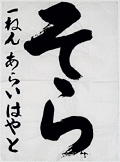 そら
一ねん あらいはやと